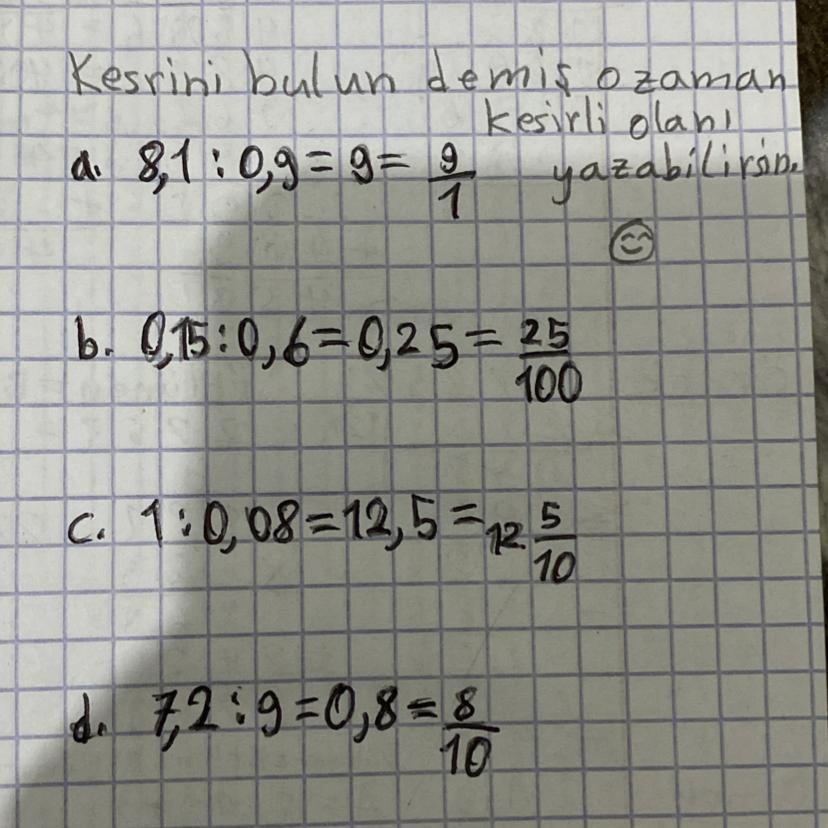 Kesrini bulun demiş o zaman
kesirli olanı
yazabilirsin.
a. 8,1 : 0,9 = 9 = 9/1
b. 0,15 : 0,6 = 0,25 = 25/100
c. 1 : 0,08 = 12,5 = 12 5/10
d. 7,2 : 9 = 0,8 = 8/10